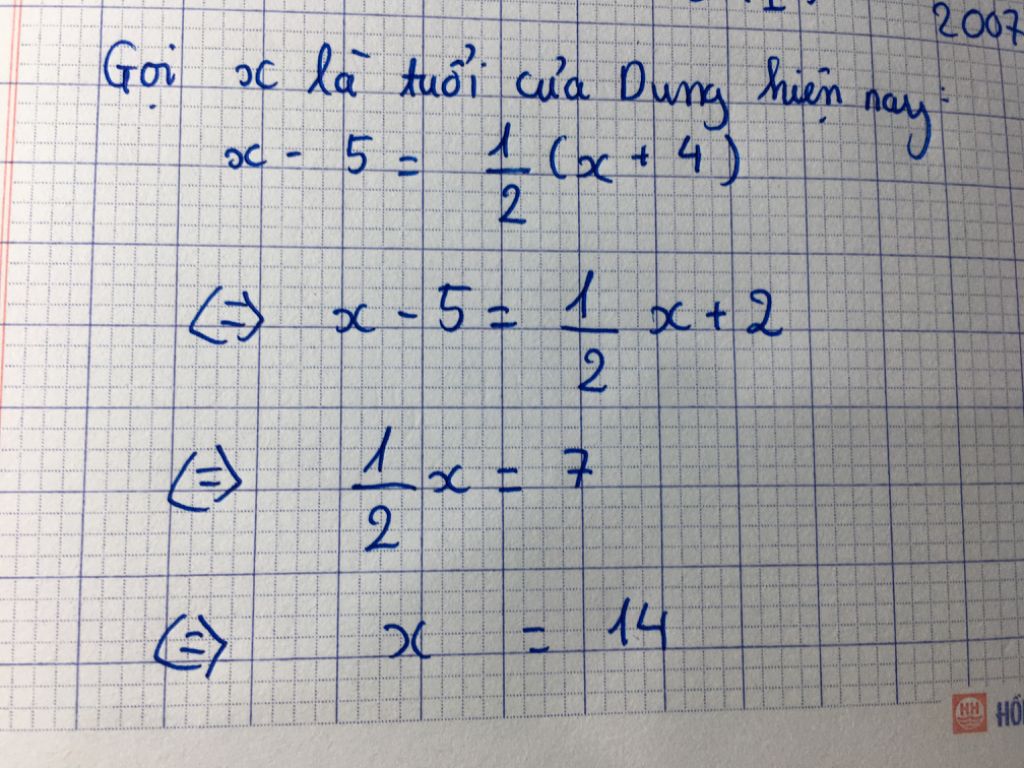 2007
Gọi x là tuổi của Dung hiện nay:
x - 5 = 1/2 (x + 4)
⇔ x - 5 = 1/2 x + 2
⇔ 1/2 x = 7
⇔ x = 14
HH